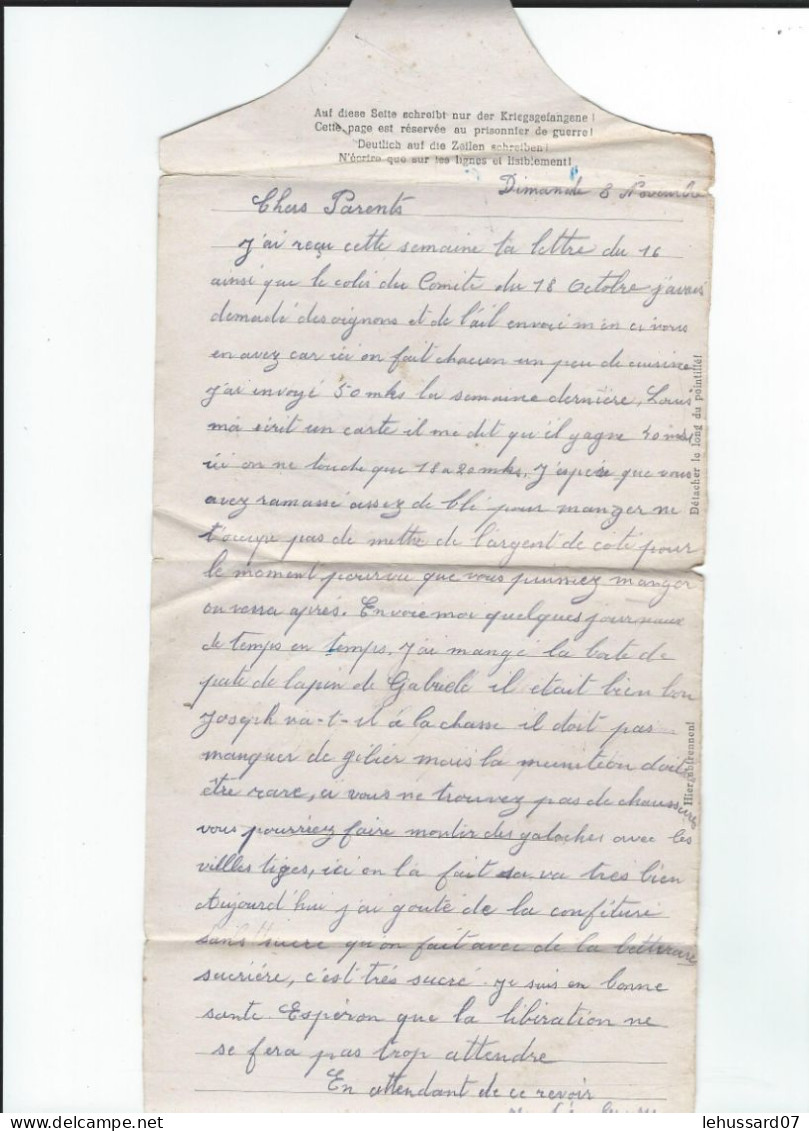 Auf diese Seite schreibt nur der Kriegsgefangene!
Cette page est réservée au prisonnier de guerre!
Deutlich auf die Zeilen schreiben!
N'écrire que sur les lignes et lisiblement!
Dimanche 8 Novembre
Chers Parents
J'ai reçu cette semaine ta lettre du 16
ainsi que le colis du Comité du 18 Octobre j'avais
demadé des oignons et de l'ail envoié m'en ci vous
en avez car ici on fait chacun un peu de cuisine
j'ai envoyé 50 mks la semaine dernière, Louis
ma écrit un carte il me dit qu'il gagne 40 mks
ici on ne touche que 18 a 20 mks. J'espère que vous
avez ramassé assez de blé pour manger ne
t'occupe pas de mettre de l'argent de coté pour
le moment pourvu que vous puissiez manger
on verra après. Envoie moi quelques journaux
de temps en temps. J'ai mangé la boite de
pate de lapin de Gabriele il était bien bon
Joseph va-t-il à la chasse il doit pas
manquer de gibier mais la munition doit
être rare, ci vous ne trouvez pas de chaussures
vous pourriez faire montir des galoches avec les
villles tiges, ici on la fait sa va très bien
Aujourd'hui j'ai gouté de la confiture
sans sucre qu'on fait avec de la betterave
sucrière, c'est très sucré. Je suis en bonne
santé. Espéron que la libération ne
se fera pas trop attendre
En attendant de ce revoir
Détacher le long du pointillé!
Hier abtrennen!
lehussard07